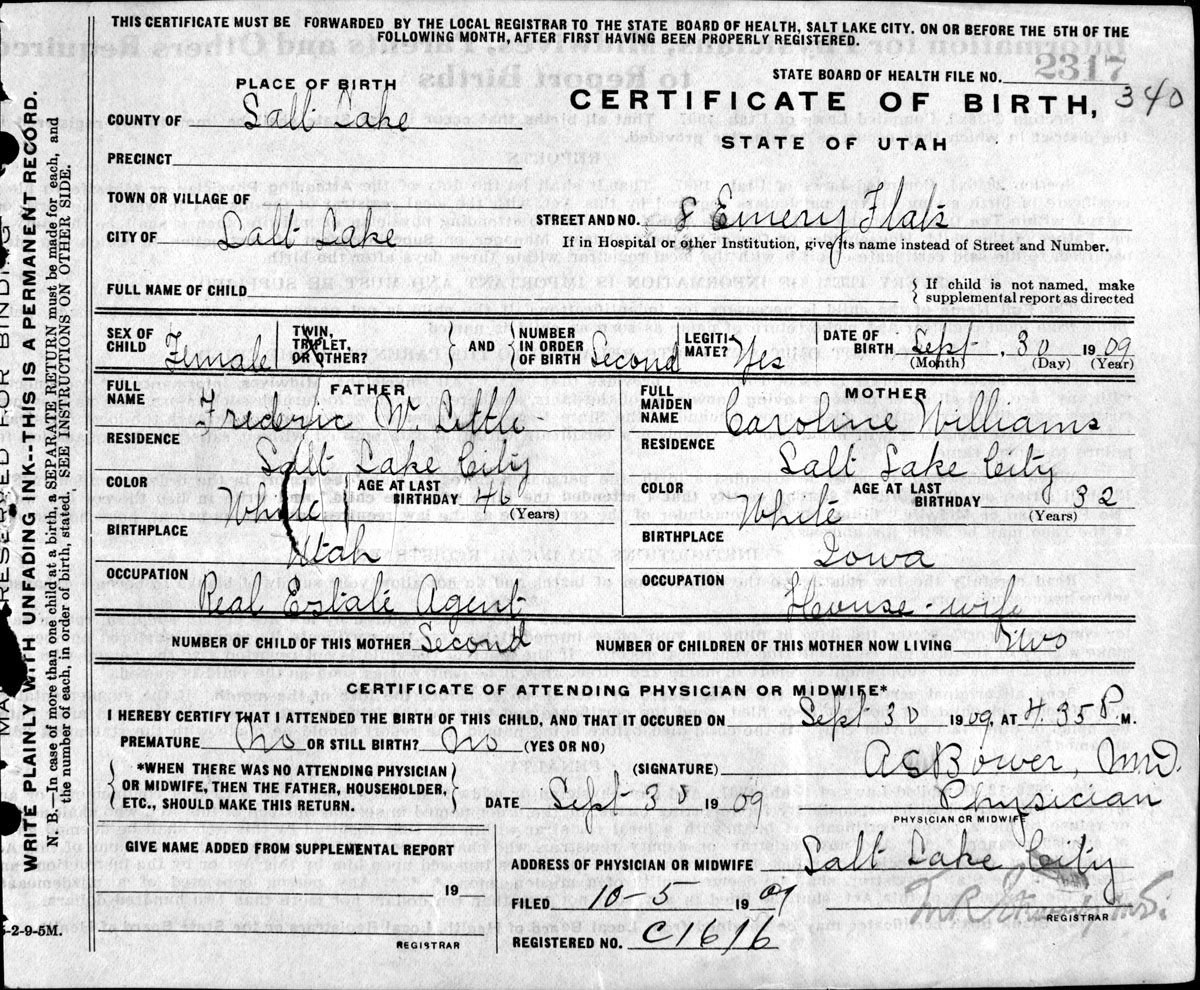 THIS CERTIFICATE MUST BE FORWARDED BY THE LOCAL REGISTRAR TO THE STATE BOARD OF HEALTH, SALT LAKE CITY. ON OR BEFORE THE 5TH OF THE
FOLLOWING MONTH, AFTER FIRST HAVING BEEN PROPERLY REGISTERED.
STATE BOARD OF HEALTH FILE NO. 2317
PLACE OF BIRTH
CERTIFICATE OF BIRTH, 340
COUNTY OF Salt Lake
STATE OF UTAH
PRECINCT
TOWN OR VILLAGE OF
STREET AND NO. 8 Emery Flats
CITY OF Salt Lake
If in Hospital or other Institution, give its name instead of Street and Number.
FULL NAME OF CHILD
{ If child is not named, make
supplemental report as directed
SEX OF CHILD Female
TWIN, TRIPLET, OR OTHER? } AND { NUMBER IN ORDER OF BIRTH Second
LEGITIMATE? Yes
DATE OF BIRTH Sept. 30 1909
(Month) (Day) (Year)
FATHER
FULL NAME Frederic W Little
RESIDENCE
Salt Lake City
COLOR White
AGE AT LAST BIRTHDAY 46
(Years)
BIRTHPLACE
Utah
OCCUPATION
Real Estate Agent
MOTHER
FULL MAIDEN NAME Caroline Williams
RESIDENCE
Salt Lake City
COLOR White
AGE AT LAST BIRTHDAY 32
(Years)
BIRTHPLACE
Iowa
OCCUPATION
House-wife
NUMBER OF CHILD OF THIS MOTHER Second
NUMBER OF CHILDREN OF THIS MOTHER NOW LIVING Two
CERTIFICATE OF ATTENDING PHYSICIAN OR MIDWIFE*
I HEREBY CERTIFY THAT I ATTENDED THE BIRTH OF THIS CHILD, AND THAT IT OCCURED ON Sept 30 1909, AT 4.35 P. M.
PREMATURE No OR STILL BIRTH? No (YES OR NO)
{ *WHEN THERE WAS NO ATTENDING PHYSICIAN
OR MIDWIFE, THEN THE FATHER, HOUSEHOLDER,
ETC., SHOULD MAKE THIS RETURN. }
(SIGNATURE) A S Bower, M.D.
DATE Sept 30 1909
Physician
PHYSICIAN OR MIDWIFE
GIVE NAME ADDED FROM SUPPLEMENTAL REPORT
19
REGISTRAR
ADDRESS OF PHYSICIAN OR MIDWIFE Salt Lake City
FILED 10-5 1909
REGISTRAR
REGISTERED NO. C1616
5-2-9-5M.
WRITE PLAINLY WITH UNFADING INK--THIS IS A PERMANENT RECORD.
N. B.—In case of more than one child at a birth, a SEPARATE RETURN must be made for each, and
the number of each, in order of birth, stated. SEE INSTRUCTIONS ON OTHER SIDE.
RESERVED FOR BINDING